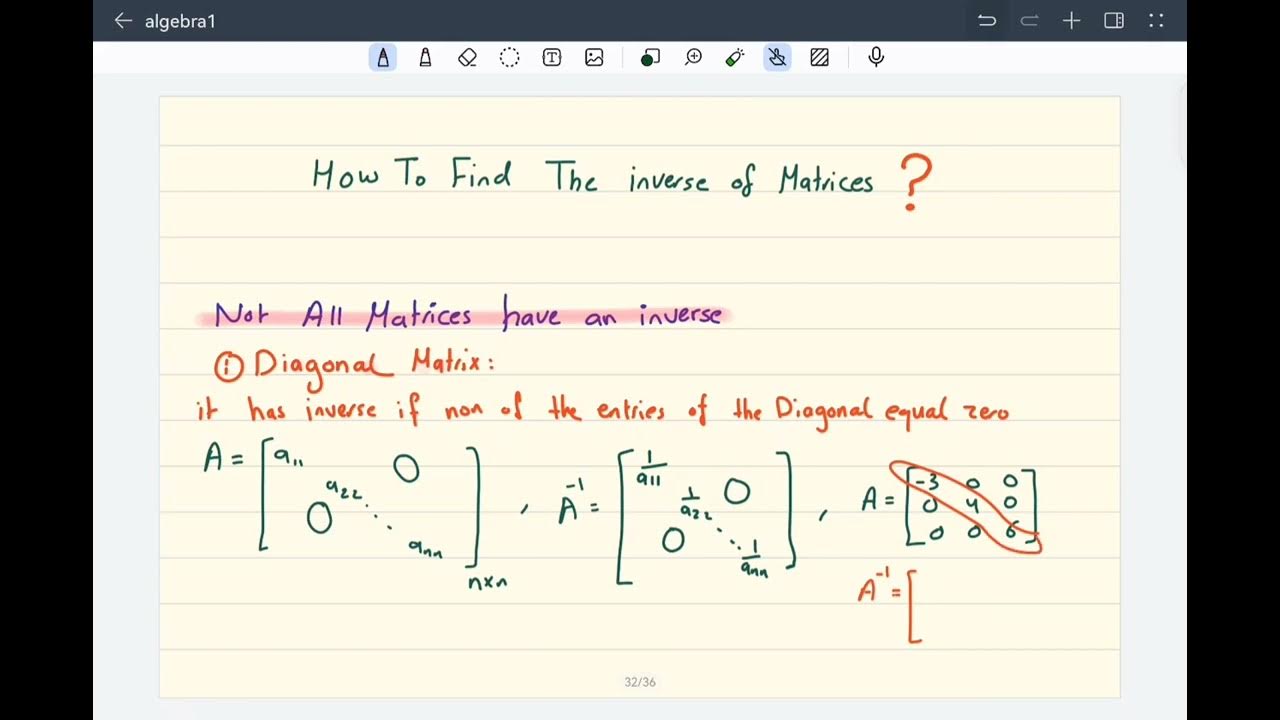 algebra1
How To Find The inverse of Matrices ?
Not All Matrices have an inverse
① Diagonal Matrix:
it has inverse if non of the entries of the Diagonal equal zero
A = [a₁₁ 0 a₂₂ ⋱ 0 aₙₙ] n×n , A⁻¹ = [1/a₁₁ 0 1/a₂₂ ⋱ 0 1/aₙₙ] , A = [-3 0 0 0 4 0 0 0 6]
A⁻¹ = [
32/36